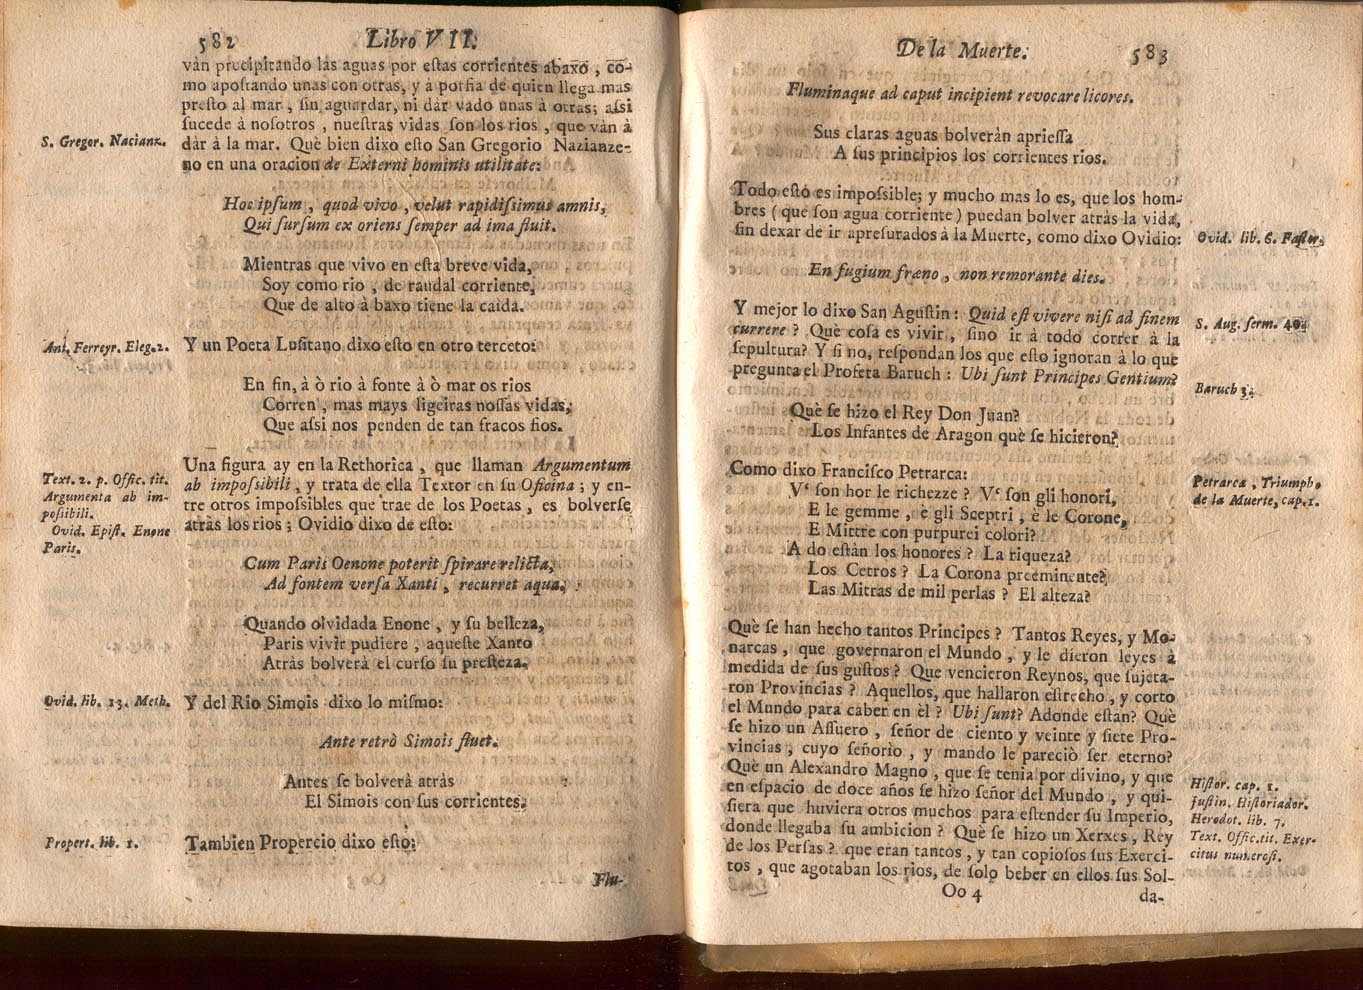 582 Libro VII.
vàn precipitando las aguas por eſtas corrientes abaxo, cō-
mo apoſtando unas con otras, y à porfia de quien llega mas
preſto al mar, ſin aguardar, ni dàr vado unas à otras; aſsi
ſucede à noſotros, nueſtras vidas ſon los rios, que vàn à
S. Gregor. Nacianz.
dàr à la mar. Què bien dixo eſto San Gregorio Nazianze-
no en una oracion de Externi hominis utilitate:
Hoc ipſum, quod vivo, velut rapidiſsimus amnis,
Qui ſurſum ex oriens ſemper ad ima fluit.
Mientras que vivo en eſta breve vida,
Soy como rio, de raudal corriente,
Que de alto à baxo tiene la caida.
Ant. Ferreyr. Eleg. 2.
Y un Poeta Luſitano dixo eſto en otro terceto:
En fin, à ò rio à fonte à ò mar os rios
Corren, mas mays ligeiras noſſas vidas;
Que aſsi nos penden de tan fracos fios.
Una figura ay en la Rethorica, que llaman Argumentum
Text. 2. p. Offic. tit.
Argumenta ab im-
poſsibili.
Ovid. Epiſt. Enone
Paris.
ab impoſsibili, y trata de ella Textor en ſu Oficina; y en-
tre otros impoſsibles que trae de los Poetas, es bolverſe
atràs los rios; Ovidio dixo de eſto:
Cum Paris Oenone poterit ſpirare relicta,
Ad fontem verſa Xanti, recurret aqua.
Quando olvidada Enone, y ſu belleza,
Paris vivir pudiere, aqueſte Xanto
Atràs bolverà el curſo ſu preſteza.
Ovid. lib. 13. Meth.
Y del Rio Simois dixo lo miſmo:
Ante retrò Simois fluet.
Antes ſe bolverà atràs
El Simois con ſus corrientes.
Propert. lib. 1.
Tambien Propercio dixo eſto:
Flu-
De la Muerte. 583
Fluminaque ad caput incipient revocare licores.
Sus claras aguas bolveràn aprieſſa
A ſus principios los corrientes rios.
Todo eſto es impoſsible; y mucho mas lo es, que los hom-
bres (que ſon agua corriente) puedan bolver atràs la vida,
ſin dexar de ir apreſurados à la Muerte, como dixo Ovidio:
Ovid. lib. 6. Faſtor.
En fugium fræno, non remorante dies.
Y mejor lo dixo San Aguſtin: Quid eſt vivere niſi ad finem
S. Aug. ſerm.
currere? Què coſa es vivir, ſino ir à todo correr à la
ſepultura? Y ſi no, reſpondan los que eſto ignoran à lo que
pregunta el Profeta Baruch: Ubi ſunt Principes Gentium?
Baruch 3.
Què ſe hizo el Rey Don Juan?
Los Infantes de Aragon què ſe hicieron?
Como dixo Franciſco Petrarca:
Petrarca, Triumpho
de la Muerte, cap. 1.
V' ſon hor le richezze? V' ſon gli honori,
E le gemme, è gli Sceptri, è le Corone,
E Mittre con purpurei colori?
A do eſtàn los honores? La riqueza?
Los Cetros? La Corona preeminente?
Las Mitras de mil perlas? El alteza?
Què ſe han hecho tantos Principes? Tantos Reyes, y Mo-
narcas, que governaron el Mundo, y le dieron leyes à
medida de ſus guſtos? Que vencieron Reynos, que ſujeta-
ron Provincias? Aquellos, que hallaron eſtrecho, y corto
el Mundo para caber en èl? Ubi ſunt? Adonde eſtàn? Què
ſe hizo un Aſſuero, ſeñor de ciento y veinte y ſiete Pro-
vincias, cuyo ſeñorio, y mando le pareciò ſer eterno?
Què un Alexandro Magno, que ſe tenia por divino, y que
en eſpacio de doce años ſe hizo ſeñor del Mundo, y qui-
ſiera que huviera otros muchos para eſtender ſu Imperio,
donde llegaba ſu ambicion? Què ſe hizo un Xerxes, Rey
de los Perſas? que eran tantos, y tan copioſos ſus Exerci-
tos, que agotaban los rios, de ſolo beber en ellos ſus Sol-
Hiſtor. cap. 1.
Juſtin. Hiſtoriador.
Herodot. lib. 7.
Text. Offic. tit. Exer-
citus numeroſi.
Oo 4 da-